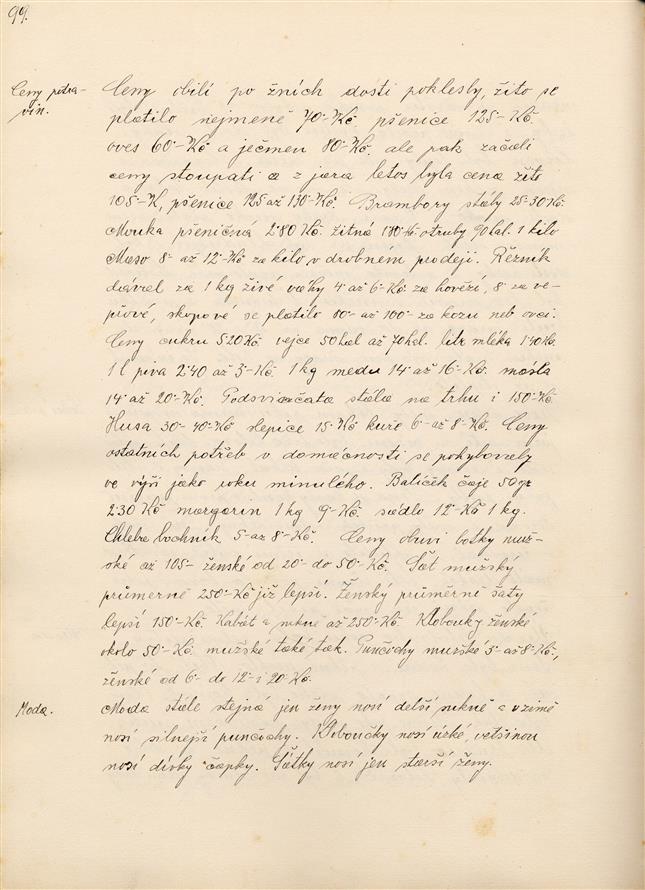 99.
Ceny potra-
vin.
Ceny obilí po žních dosti poklesly, žito se
platilo nejméně 70·- Kč pšenice 125·- Kč
oves 60·- Kč a ječmen 80·- Kč. ale pak začali
ceny stoupati a z jara letos byla cena žita
105·- K, pšenice 125 až 130·- Kč. Brambory stály 25-30 Kč.
Mouka pšeničná 2·80 Kč. žitná 1·80 Kč. otruby 90 hal. 1 kilo
Maso 8·- až 12·- Kč za kilo, v drobném prodeji. Řezník
dával za 1 kg živé váhy 4·- až 6·- Kč. za hovězí, 8·- za ve-
přové, skopové se platilo 80·- až 100·- za kozu neb ovci.
Ceny cukru 5·20 Kč vejce 50 hal až 70 hal. litr mléka 1·40 Kč.
1 l piva 2·40 až 3·- Kč. 1 kg medu 14·- až 16·- Kč. másla
14·- až 20·- Kč. Podsvinčata stála na trhu i 150·- Kč.
Husa 30·- 40·- Kč slepice 15·- Kč kuře 6·- až 8·- Kč. Ceny
ostatních potřeb v domácnosti se pohybovaly
ve výši jako roku minulého. Balíček čaje 50 gr
2·30 Kč margarin 1 kg 9·- Kč. sádlo 12·- Kč 1 kg.
Chleba bochník 5·- až 8·- Kč. Ceny obuvi botky muž-
ské až 105·- ženské od 20·- do 50·- Kč. Šat mužský
průměrně 250·- Kč již lepší. Ženský průměrně šaty
lepší 150·- Kč. Kabát a sukně až 250·- Kč. Klobouky ženské
okolo 50·- Kč. mužské také tak. Punčochy mužské 5·- až 8·- Kč.,
ženské od 6·- do 12·- i 20 Kč.
Moda.
Moda stále stejná jen ženy nosí delší sukně a v zimě
nosí silnější punčochy. Kloboučky nosí úzké, vetšinou
nosí dívky čapky. Šátky nosí jen starší ženy.